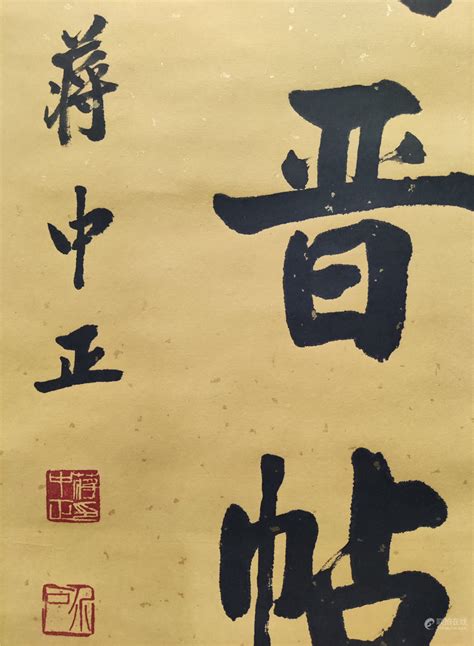 晋帖
蔣中正
蔣中正印